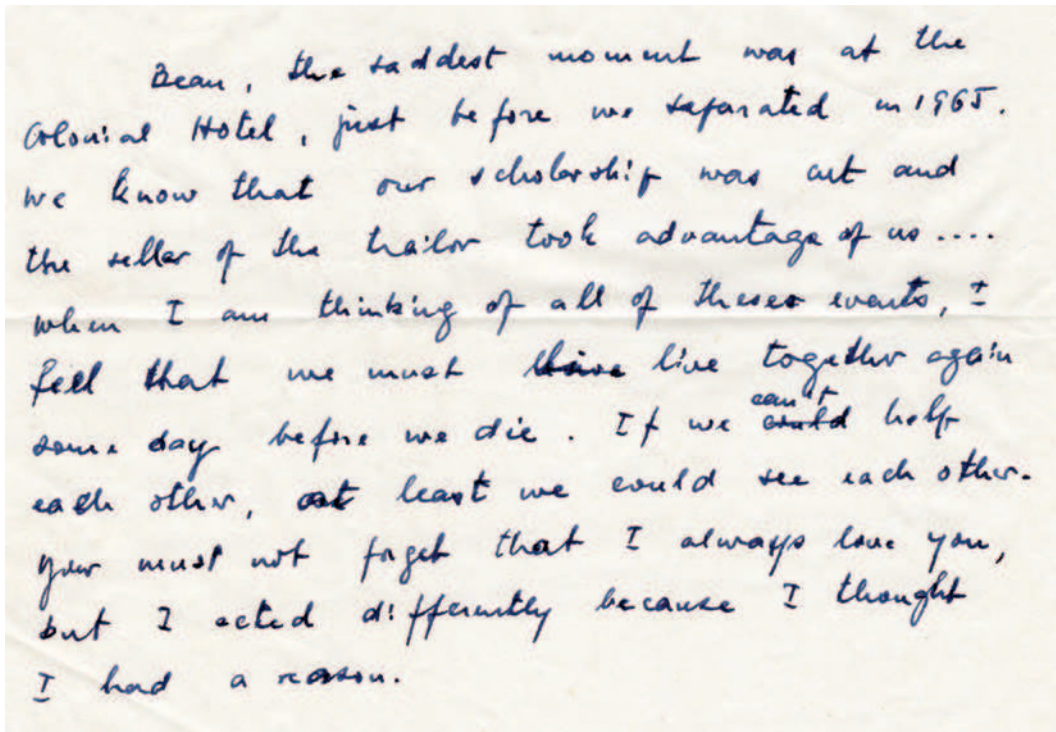 Bean, the saddest moment was at the
Colonial Hotel, just before we separated in 1965.
we know that our scholarship was cut and
the seller of the trailor took advantage of us ....
when I am thinking of all of these events, I
feel that we must live together again
some day before we die. If we can't help
each other, at least we could see each other.
you must not forget that I always love you,
but I acted differently because I thought
I had a reason.